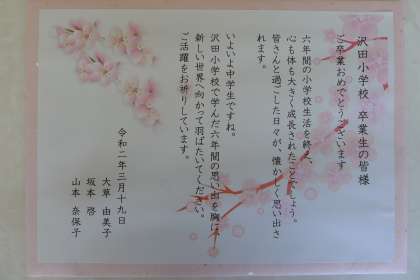 沢田小学校 卒業生の皆様
ご卒業おめでとうございます
六年間の小学校生活を終え、
心も体も大きく成長されたことでしょう。
皆さんと過ごした日々が、懐かしく思い出さ
れます。
いよいよ中学生ですね。
沢田小学校で学んだ六年間の思い出を胸に
新しい世界へ向かって羽ばたいてください。
ご活躍をお祈りしています。
令和二年三月十九日
大草 由美子
坂本 啓
山本 奈保子